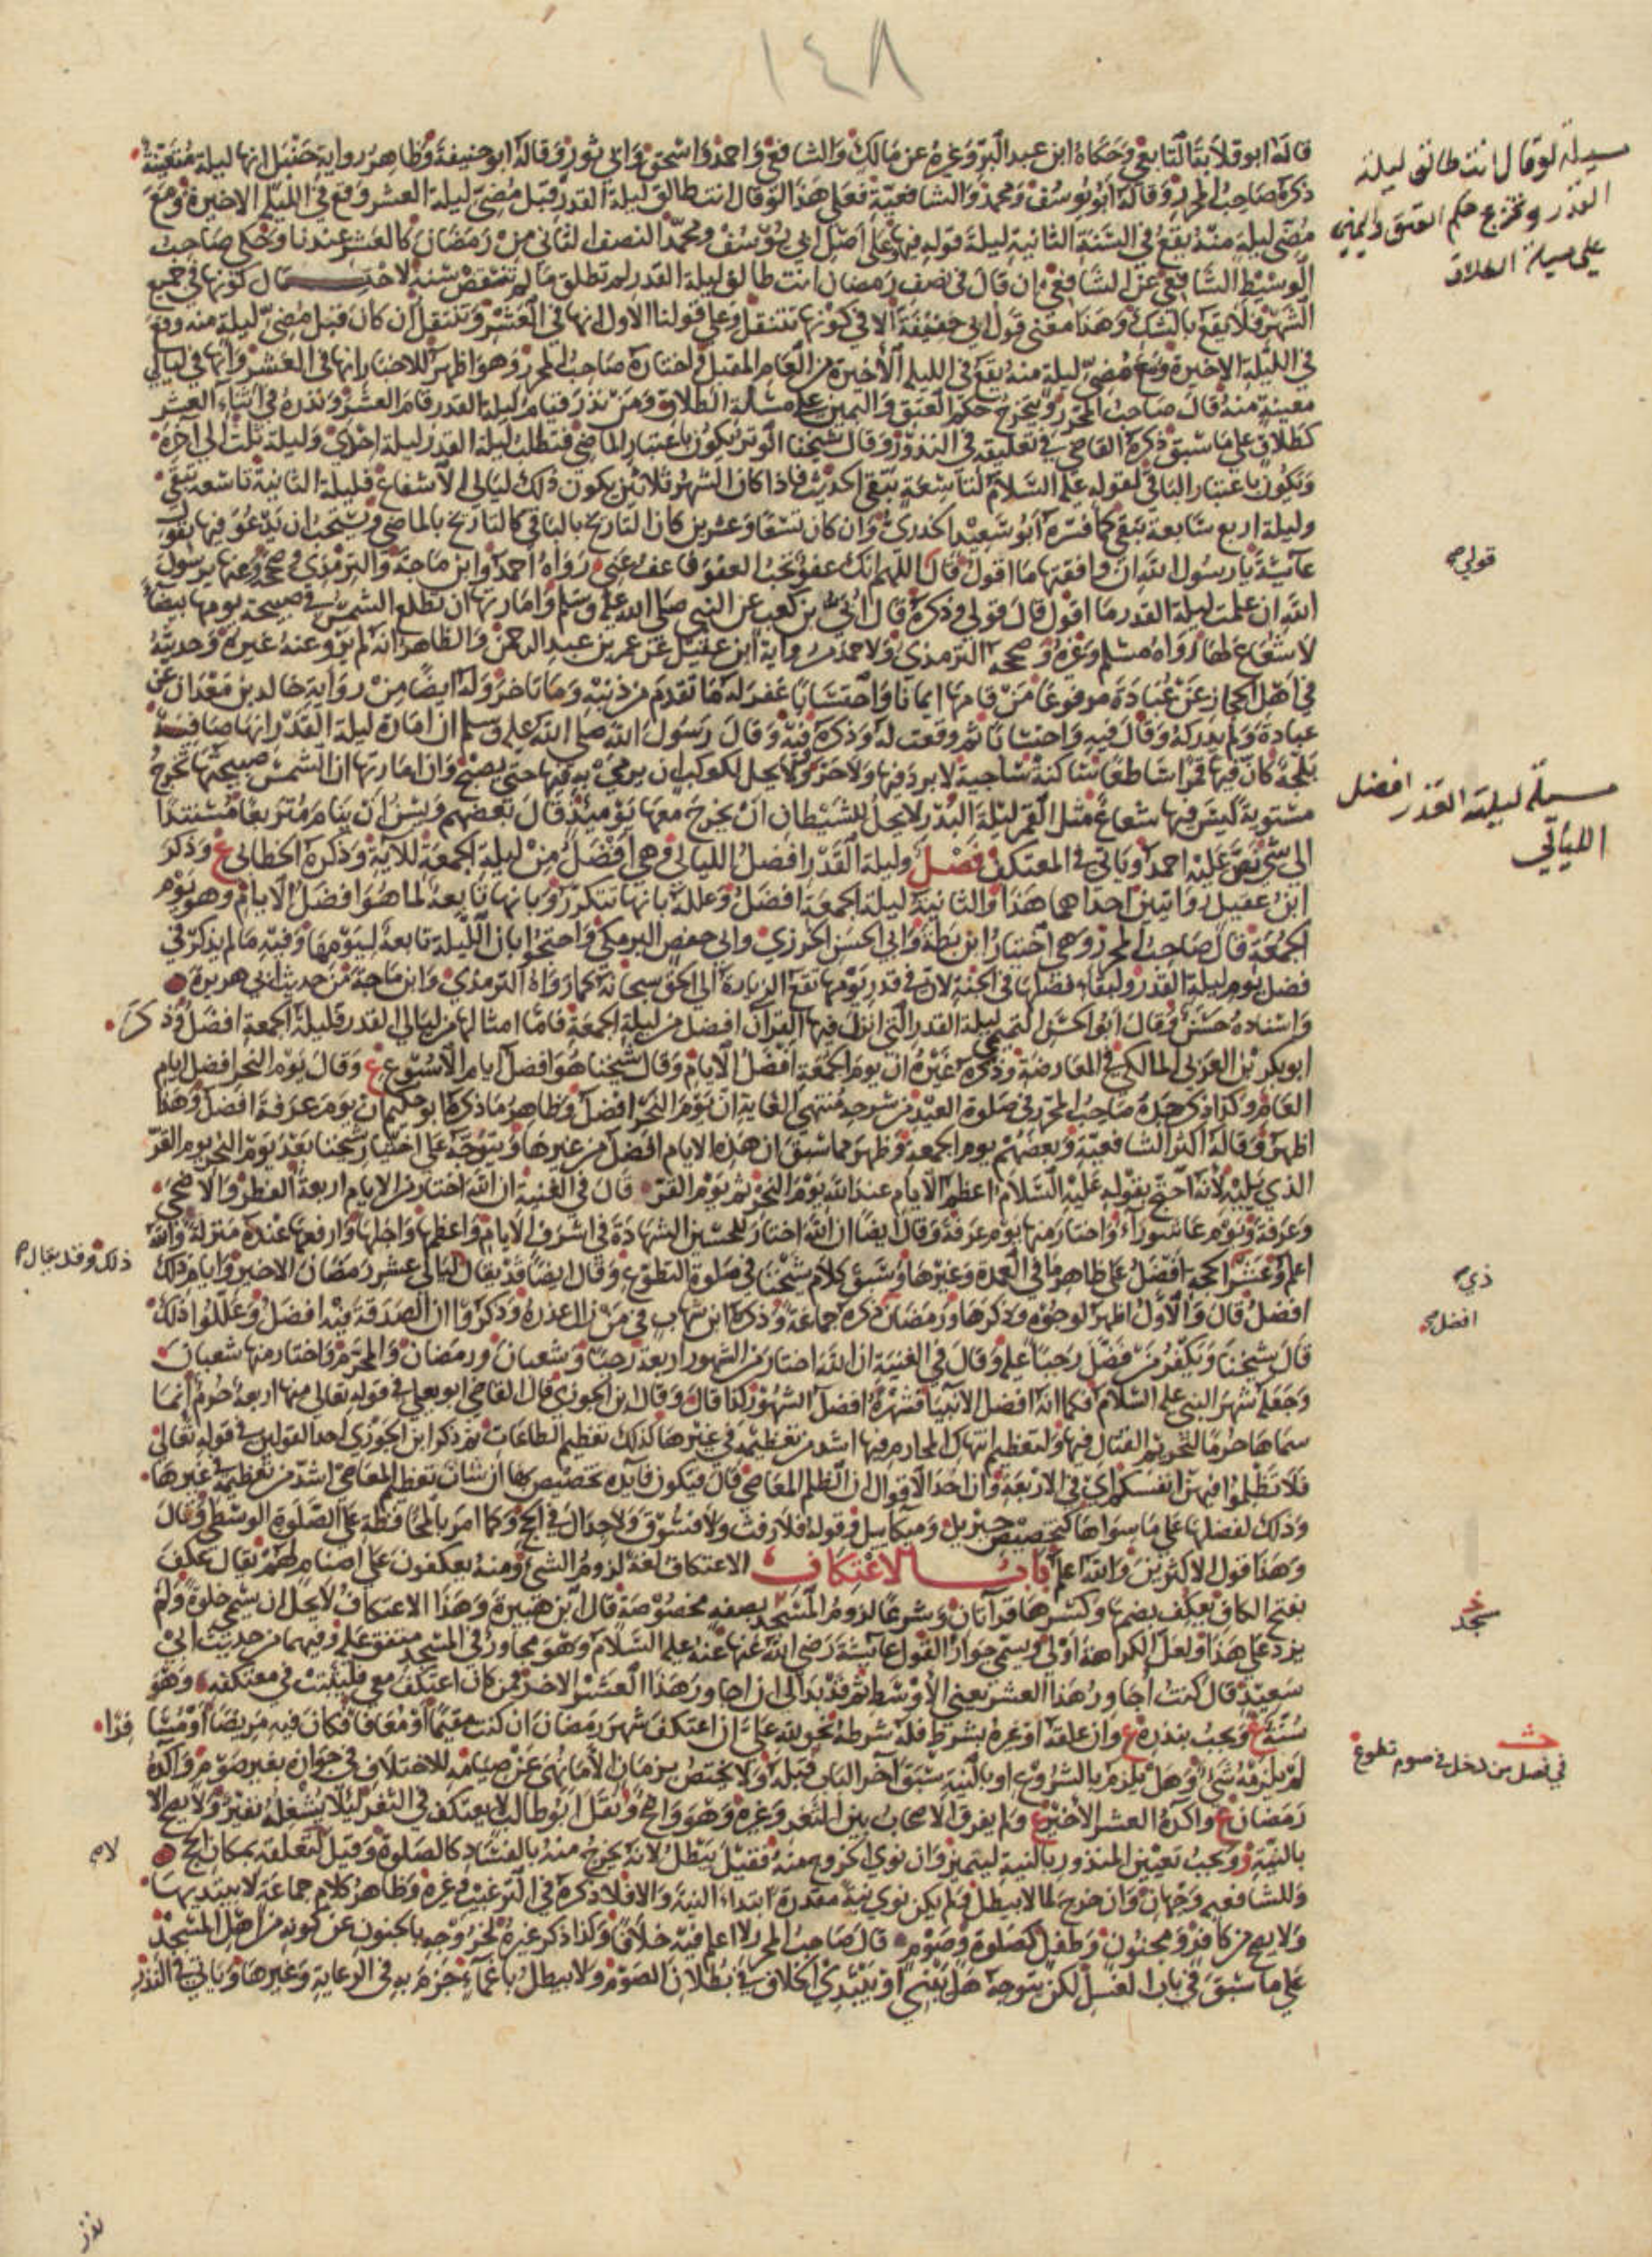 ١٤٨
قاله ابو قلابة التابعي وحكاه ابن عبد البر وغيره عن مالك والشافعي واحمد واسحق وابي ثور وقاله ابو حنيفة وظاهر رواية حنبل انها ليلة متعينة
ذكره صاحب المحرر وقاله ابو يوسف ومحمد والشافعية فعلى هذا لو قال انت طالق ليلة القدر قبل مضي ليلة العشر وقع في الليلة الاخيرة ومع
مضي ليلة منه يقع في السنة الثانية ليلة قوله فيها وعلى اصل ابي يوسف ومحمد النصف الثاني من رمضان كالعشر عندنا وحكى صاحب
الوسيط الشافعي عن الشافعي ان قال في نصف رمضان انت طالق ليلة القدر لم تطلق ما لم تنقض سنة لاحتمال كونها في جميع
الشهر فلا يقع بالشك وهذا معنى قول ابي حنيفة الا في كونها تتنقل وعلى قولنا الاول انها في العشر وتنتقل ان كان قبل مضي ليلة منه وقع
في الليلة الاخيرة ومع مضي ليلة منه يقع في الليلة الاخيرة من العام المقبل واختاره صاحب المحرر وهو اظهر للاخبار انها في العشر وانها في ليالي
معينة منه قال صاحب المحرر ويتخرج حكم العتق واليمين على مسألة الطلاق ومن نذر قيام ليلة القدر قام العشر ونذره في اثناء العشر
كطلاق على ما سبق ذكره القاضي في تعليقه في النذور وقال شيخنا الوتر يكون باعتبار الماضي فتطلب ليلة القدر ليلة احدى وليلة ثلث الى اخره
ويكون باعتبار الباقي لقوله عليه السلام لتاسعة تبقى الحديث فاذا كان الشهر ثلاثين يكون ذلك ليالي الاشفاع فليلة الثانية تاسعة تبقى
وليلة اربع سابعة تبقى كما فسره ابو سعيد الخدري وان كان تسعا وعشرين كان التاريخ بالباقي كالتاريخ بالماضي ويستحب ان يدعو فيها بقول
عائشة يا رسول الله ان وافقتها ما اقول قال اللهم انك عفو تحب العفو فاعف عني رواه احمد وابن ماجة والترمذي وصححه وعنها يرسول
الله ان علمت ليلة القدر ما اقول قال قولي وذكره قال ابي بن كعب عن النبي صلى الله عليه وسلم وامارتها ان تطلع الشمس في صبيحة يومها بيضاء
لا شعاع لها رواه مسلم وغيره وصححه الترمذي ولاحمد من رواية ابن عقيل عن عمر بن عبد الرحمن والظاهر انه لم يرو عنه غيره وحديثه
في اهل الحجاز عن عبادة مرفوعا من قامها ايمانا واحتسابا غفر له ما تقدم من ذنبه وما تاخر وله ايضا من رواية خالد بن معدان عن
عبادة ولم يدركه وقال فيه واحتسابا ثم وقعت له وذكره فيه وقال رسول الله صلى الله عليه وسلم ان امارة ليلة القدر انها صافية
بلجة كان فيها قمرا ساطعا ساكنة ساجية لا برد فيها ولا حر ولا يحل لكوكب ان يرمى به فيها حتى يصبح وان امارتها ان الشمس صبيحتها تخرج
مستوية ليس فيها شعاع مثل القمر ليلة البدر لا يحل للشيطان ان يخرج معها يومئذ قال بعضهم ويسن ان ينام متربعا مستندا
الى شي نص عليه احمد وياتي في المعتكف فصل وليلة القدر افضل الليالي وهي افضل من ليلة الجمعة للآية وذكره الخطابي ع وذكر
ابن عقيل روايتين احداهما هذا والثانية ليلة الجمعة افضل وعلله بانها تتكرر وبانها تابعة لما هو افضل الايام وهو يوم
الجمعة قال صاحب المحرر وهي اختيار ابن بطة وابي الحسن الخرزي وابي حفص البرمكي واحتجوا بان الليلة تابعة ليومها وفيه ما لم يذكر في
فضل يوم ليلة القدر ولبقاء فضلها في الجنة لان في قدر يومها تقع الزيارة الى الحق سبحانه كما رواه الترمذي وابن ماجة من حديث ابي هريرة
واسناده حسن وقال ابو الحسن التميمي ليلة القدر التي انزل فيها القرآن افضل من ليلة الجمعة فاما امثالها من ليالي القدر فليلة الجمعة افضل وذكر
ابو بكر بن العربي المالكي في المعارضة وذكره غيره ان يوم الجمعة افضل الايام وقال شيخنا هو افضل ايام الاسبوع ع وقال يوم النحر افضل ايام
العام وكذا ذكر جده صاحب المحرر في صلوة العيد من شرحه منتهى الغاية ان يوم النحر افضل وظاهر ما ذكره ابو حكيم ان يوم عرفة افضل وهذا
اظهر وقاله اكثر الشافعية وبعضهم يوم الجمعة وظهر مما سبق ان هذه الايام افضل من غيرها ويتوجه على اختيار شيخنا بعد يوم النحر يوم القر
الذي يليه لانه احتج بقوله عليه السلام اعظم الايام عند الله يوم النحر ثم يوم القر قال في الغنية ان الله اختار من الايام اربعة الفطر والاضحى
وعرفة ويوم عاشوراء واختار منها يوم عرفة وقال ايضا ان الله اختار للحسين الشهادة في اشرف الايام واعظمها واجلها وارفعها عنده منزلة والله
اعلم وعشر الحجة افضل على ظاهر ما في العمدة وغيرها وسبق كلام شيخنا في صلوة التطوع وقال ايضا قد يقال ليالي عشر رمضان الاخير وايام ذلك
افضل قال والاول اظهر لوجوه وذكرها ورمضان ذكره جماعة وذكره ابن شهاب في من زال عذره وذكروا ان الصدقة فيه افضل وعللوا ذلك
قال شيخنا ويكفر من فضل رجبا عليه وقال في الغنية ان الله اختار من الشهور اربعة رجبا وشعبان ورمضان والمحرم واختار منها شعبان
وجعله شهر النبي عليه السلام فكما انه افضل الانبيا فشهره افضل الشهور كذا قال وقال ابن الجوزي قال القاضي ابو يعلى في قوله تعالى منها اربعة حرم انما
سماها حرما لتحريم القتال فيها ولتعظيم انتهاك المحارم فيها اشد من تعظيمه في غيرها كذلك تعظيم الطاعات ثم ذكر ابن الجوزي احد القولين في قوله تعالى
فلا تظلموا فيهن انفسكم اي في الاربعة وان احد الاقوال ان الظلم المعاصي قال فيكون فائدة تخصيصها ان شان تعظم المعاصي اشد من تعظيمه في غيرها
وذلك لفضلها على ما سواها كتخصيص جبريل وميكائيل وقوله فلا رفث ولا فسوق ولا جدال في الحج وكما امر بالمحافظة على الصلوة الوسطى وقال
وهذا قول الاكثرين والله اعلم باب الاعتكاف الاعتكاف لغة لزوم الشي ومنه يعكفون على اصنام لهم يقال عكف
بفتح الكاف يعكف بضمها وكسرها قرآتان وشرعا لزوم المسجد بصفة مخصوصة قال ابن هبيرة وهذا الاعتكاف لا يحل ان يسمى خلوة ولم
يزد على هذا ولعل الكراهة اولى ويسمى جوارا لقول عائشة رضي الله عنها عنه عليه السلام وهو مجاور في المسجد متفق عليه وفيهما من حديث ابي
سعيد قال كنت اجاور هذا العشر يعني الاوسط ثم قد بدا لي ان اجاور هذا العشر الاخر فمن كان اعتكف معي فليثبت في معتكفه وهو
سنة ع ويجب بنذره ع وان علقه او غيره بشرط فله شرطه نحو لله علي ان اعتكف شهر رمضان ان كنت مقيما او معافا فكان فيه مريضا او مسافرا
لم يلزمه شي وهل يلزم بالشروع او بالنية سبق آخر الباب قبله ولا يختص بزمان الا ما نهي عن صيامه للاختلاف في جوازه بغير صوم وآكده
رمضان ع واكده العشر الاخير ع ولم يفرق الاصحاب بين الثغر وغيره وهو واضح ونقل ابو طالب لا يعتكف في الثغر ليلا يشغله نفير ولا يصح الا
بالنية ويجب تعيين المنذور بالنية ليتميز وان نوى الخروج منه فقيل يبطل لانه يخرج منه بالفساد كالصلوة وقيل لا لتعلقه بمكان الحج
وللشافعيه وجهان وان خرج لما لا يبطل ولم يكن نوى نية مقدرة ابتداء النية والا فلا ذكره في الترغيب وغيره وظاهر كلام جماعة لا يبتديها
ولا يصح من كافر ومجنون وطفل كصلوة وصوم قال صاحب المحرر لا اعلم فيه خلافا وكذا ذكر غيره لخروجه بالجنون عن كونه من اهل المسجد
على ما سبق في باب الغسل لكن يتوجه هل يبني او يبتدي الخلاف في بطلان الصوم ولا يبطل باغماء جزم به في الرعاية وغيرها وياتي في النذر
مسيلة لو قال انت طالق ليلة
القدر وتخرج حكم العتق واليمين
على مسيلة الطلاق
قولي صح
مسيلة ليلة القدر افضل
الليالي
ذي
افضل صح
ذلك وقد يقال صح
مسجد
في فصل من دخل في صوم تطوع
لا صح
نذر